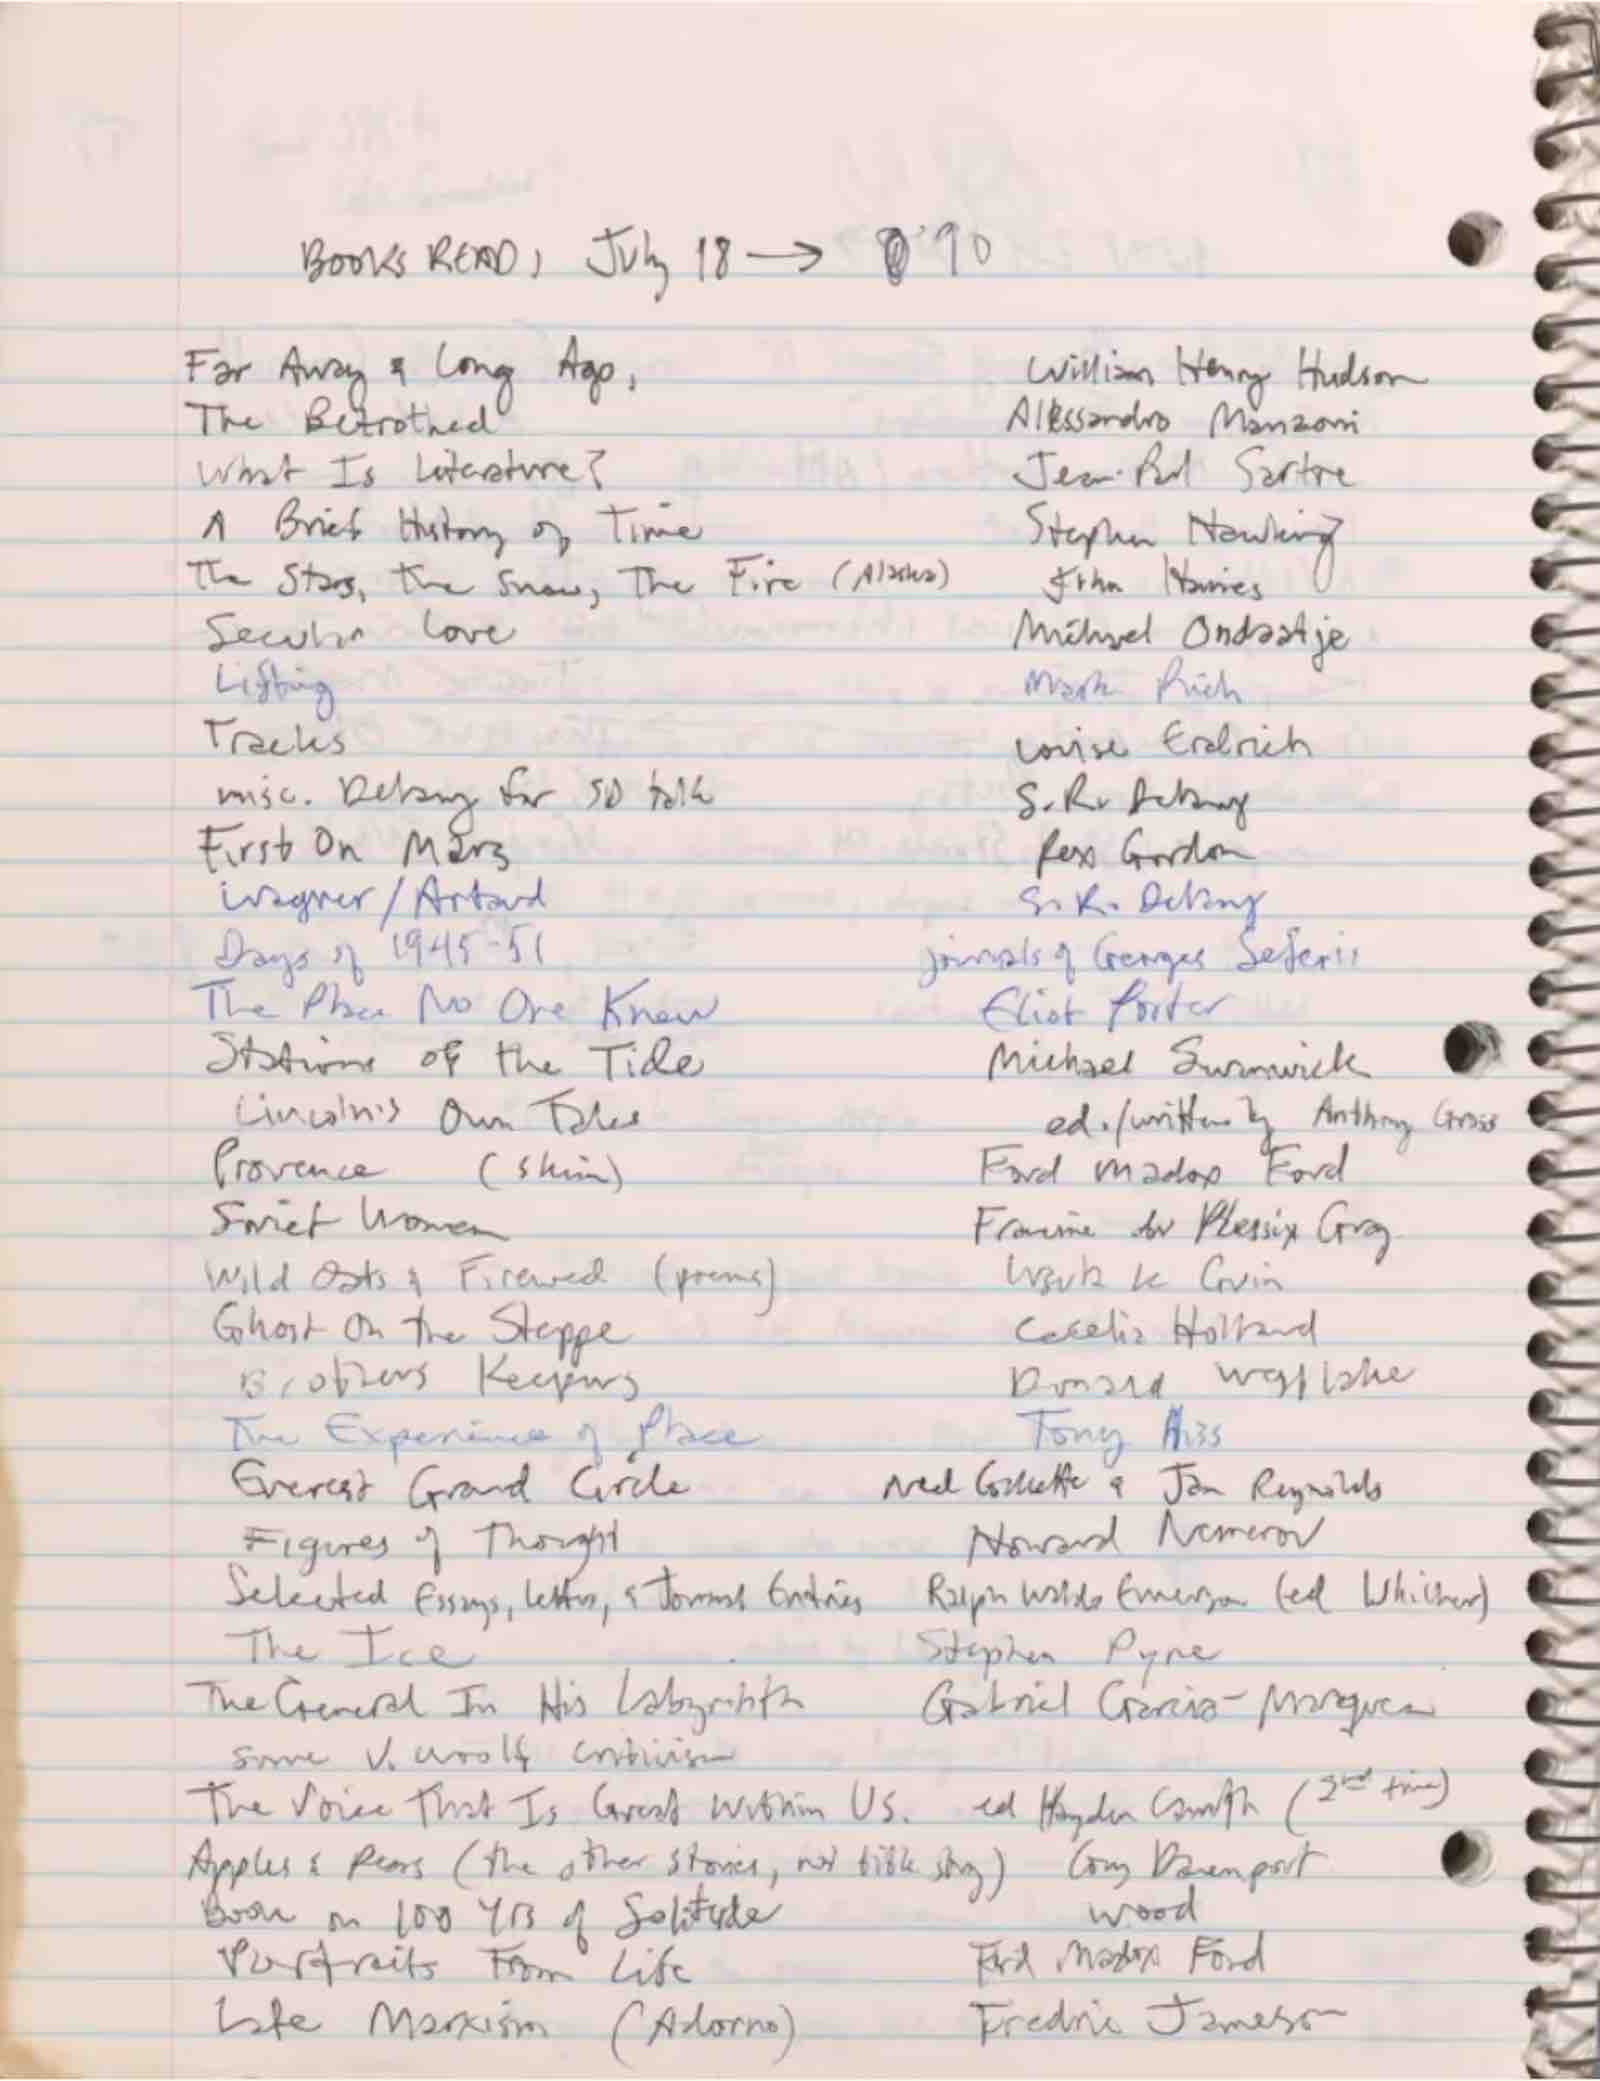 BOOKS READ, July 18 → '90
Far Away & Long Ago, William Henry Hudson
The Betrothed Alessandro Manzoni
What Is Literature? Jean-Paul Sartre
A Brief History of Time Stephen Hawking
The Stars, the Snow, The Fire (Alaska) John Haines
Secular Love Michael Ondaatje
Lifting Mark Rich
Tracks Louise Erdrich
misc. Delany for SD talk S.R. Delany
First On Mars Rex Gordon
Wagner/Artaud S.R. Delany
Days of 1945-51 journals of Georges Seferis
The Place No One Knew Eliot Porter
Stations of the Tide Michael Swanwick
Lincoln's Own Tales ed./written by Anthony Gross
Provence (skim) Ford Madox Ford
Soviet Women Francine du Plessix Gray
Wild Oats & Fireweed (poems) Ursula Le Guin
Ghost On the Steppe Cecelia Holland
Brothers Keepers Donald Westlake
The Experience of Place Tony Hiss
Everest Grand Circle Ned Gillette & Jan Reynolds
Figures of Thought Howard Nemerov
Selected Essays, letters, & Journal Entries Ralph Waldo Emerson (ed Whicher)
The Ice Stephen Pyne
The General In His Labyrinth Gabriel Garcia-Marquez
some V. Woolf criticism
The Voice That Is Great Within Us. ed Hayden Carruth (2nd time)
Apples & Pears (the other stories, not title story) Guy Davenport
Book on 100 Yrs of Solitude Wood
Portraits From Life Ford Madox Ford
Late Marxism (Adorno) Fredric Jameson